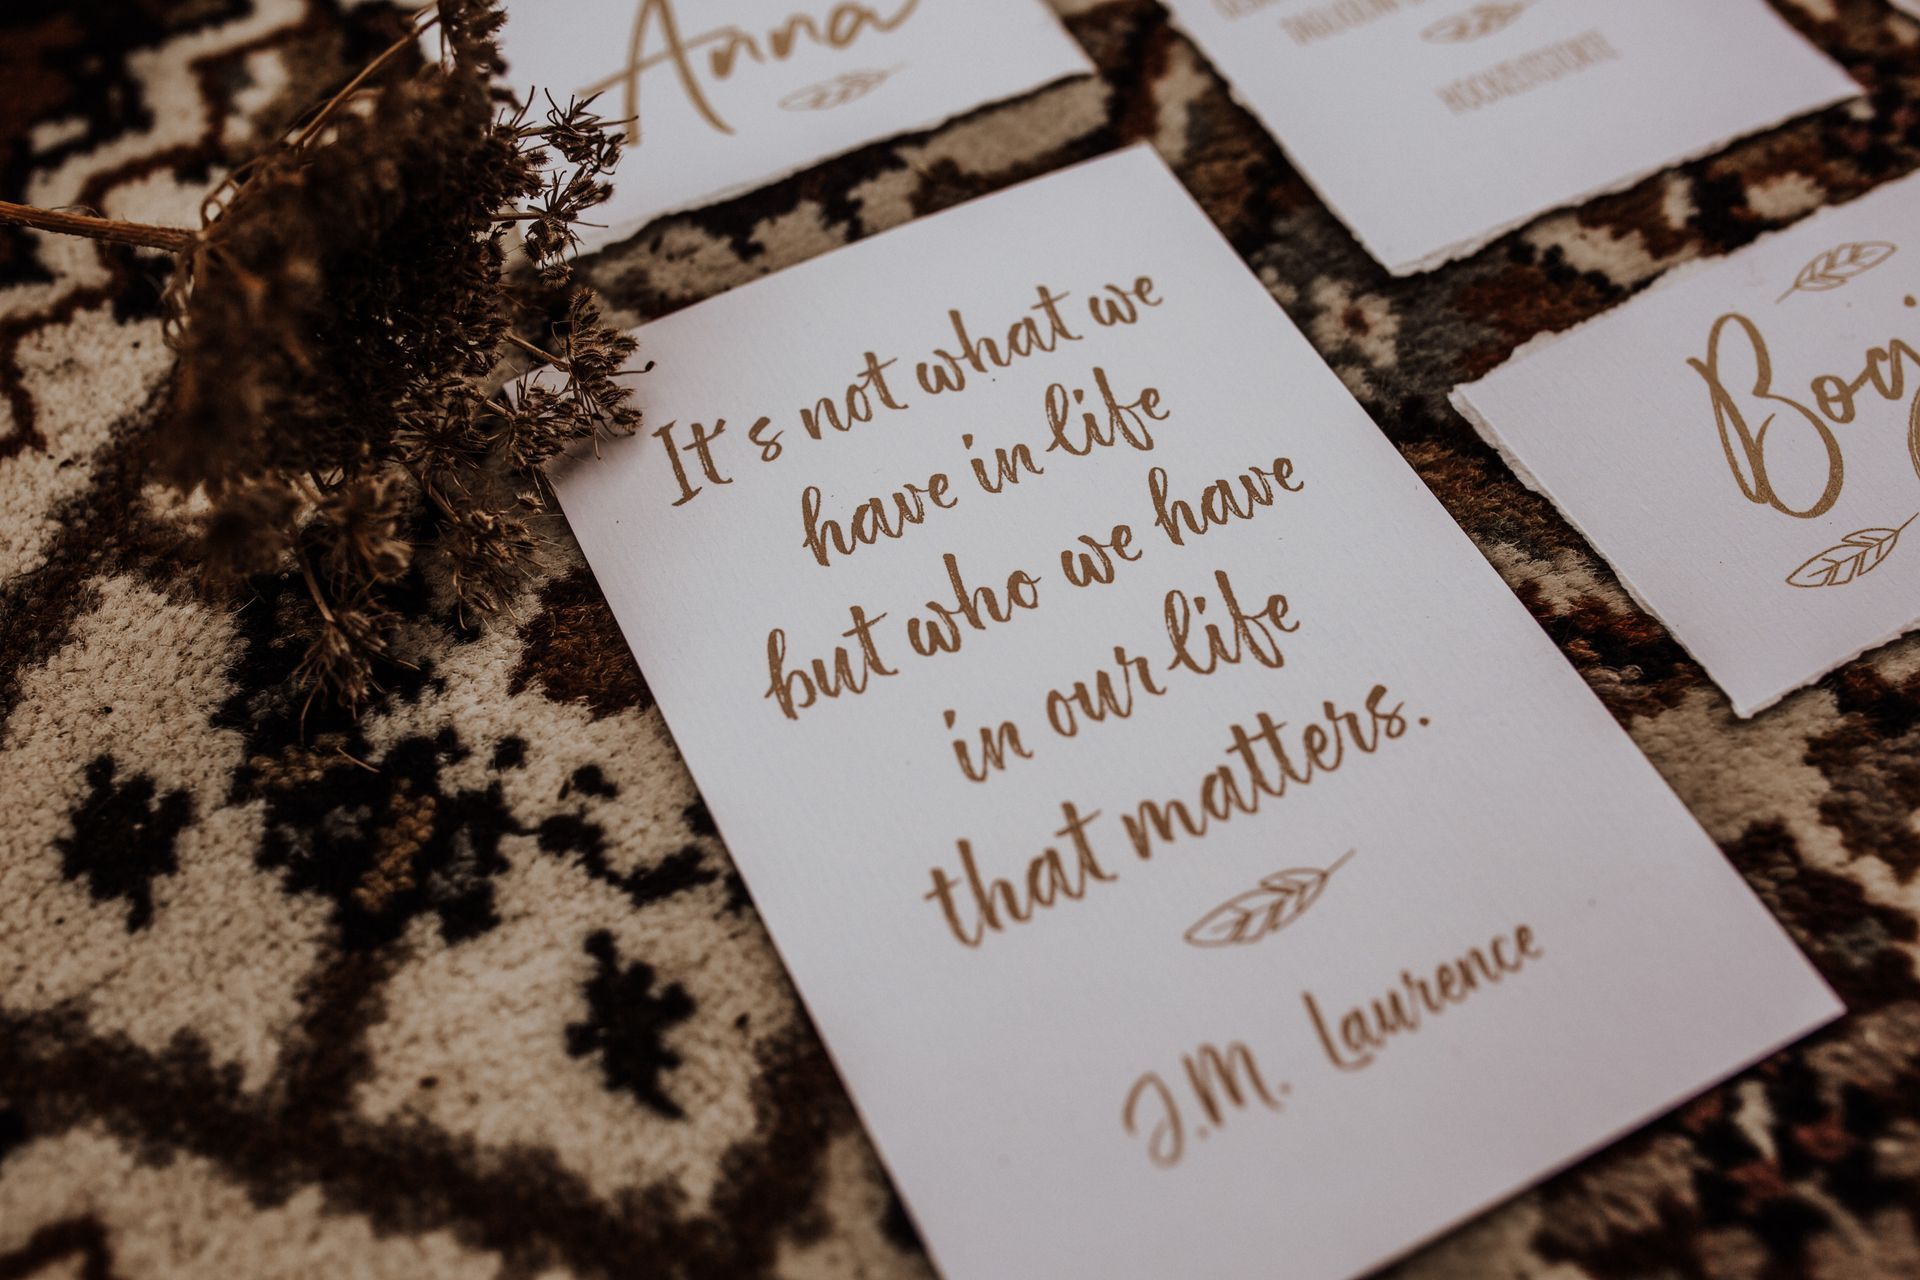 Anna
It's not what we
have in life
but who we have
in our life
that matters.
J.M. Laurence